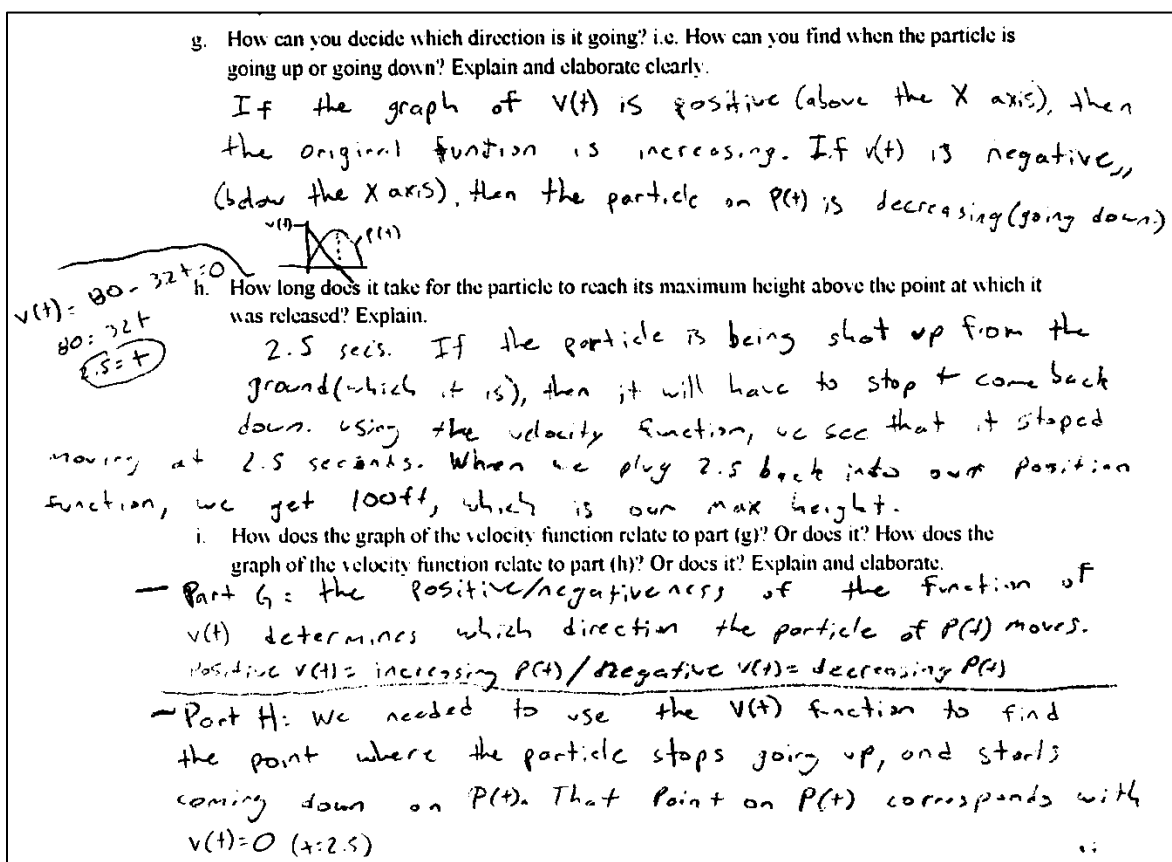 g. How can you decide which direction is it going? i.e. How can you find when the particle is
going up or going down? Explain and elaborate clearly.
If the graph of v(t) is positive (above the X axis), then
the original funtion is increasing. If v(t) is negative,,
(below the X axis), then the particle on P(t) is decreasing (going down.)
v(t)
P(t)
v(t) = 80 - 32t = 0
80 = 32t
2.5 = t
h. How long does it take for the particle to reach its maximum height above the point at which it
was released? Explain.
2.5 secs. If the particle is being shot up from the
ground (which it is), then it will have to stop + come back
down. using the velocity function, we see that it stoped
moving at 2.5 seconds. When we plug 2.5 back into our position
function, we get 100ft, which is our max height.
i. How does the graph of the velocity function relate to part (g)? Or does it? How does the
graph of the velocity function relate to part (h)? Or does it? Explain and elaborate.
- Part G: the positive/negativeness of the function of
v(t) determines which direction the particle of P(t) moves.
Positive v(t) = increasing P(t) / negative v(t) = decreasing P(t)
- Part H: We needed to use the v(t) function to find
the point where the particle stops going up, and starts
coming down on P(t). That Point on P(t) corresponds with
v(t)=0 (t=2.5)